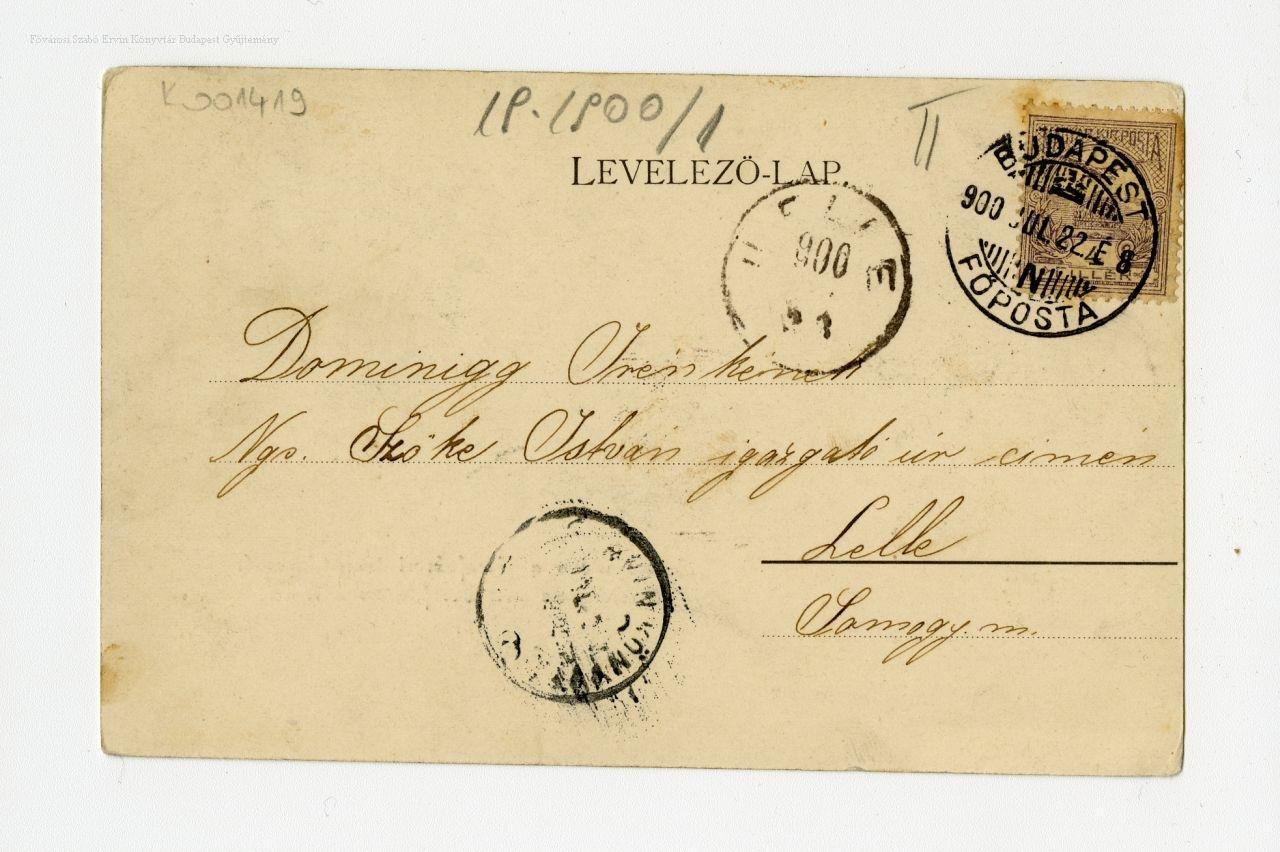 Fővárosi Szabó Ervin Könyvtár Budapest Gyűjtemény
K 001419
IP.1900/1
II
LEVELEZŐ-LAP
KIR. POSTA
BUDAPEST
900 JUL. 22. É 8
N
FŐPOSTA
900
Dominigg Irénkének
Ngs. Szőke István igazgató úr címén
Lelle
Somogy m.